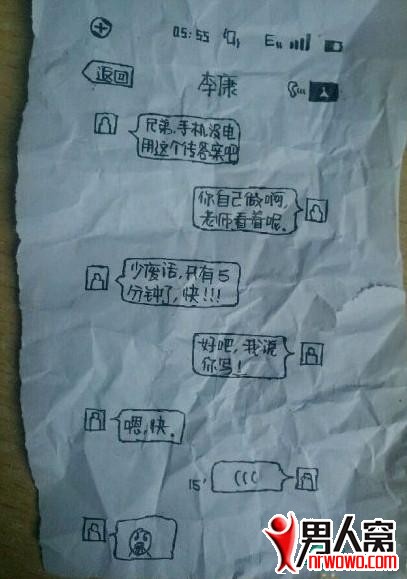 05:55 E
返回 李康
兄弟,手机没电
用这个传答案吧
你自己做啊,
老师看着呢.
少废话,只有5
分钟了,快!!!
好吧,我说
你写!
嗯,快.
15' (((
男人窝
nrwowo.com